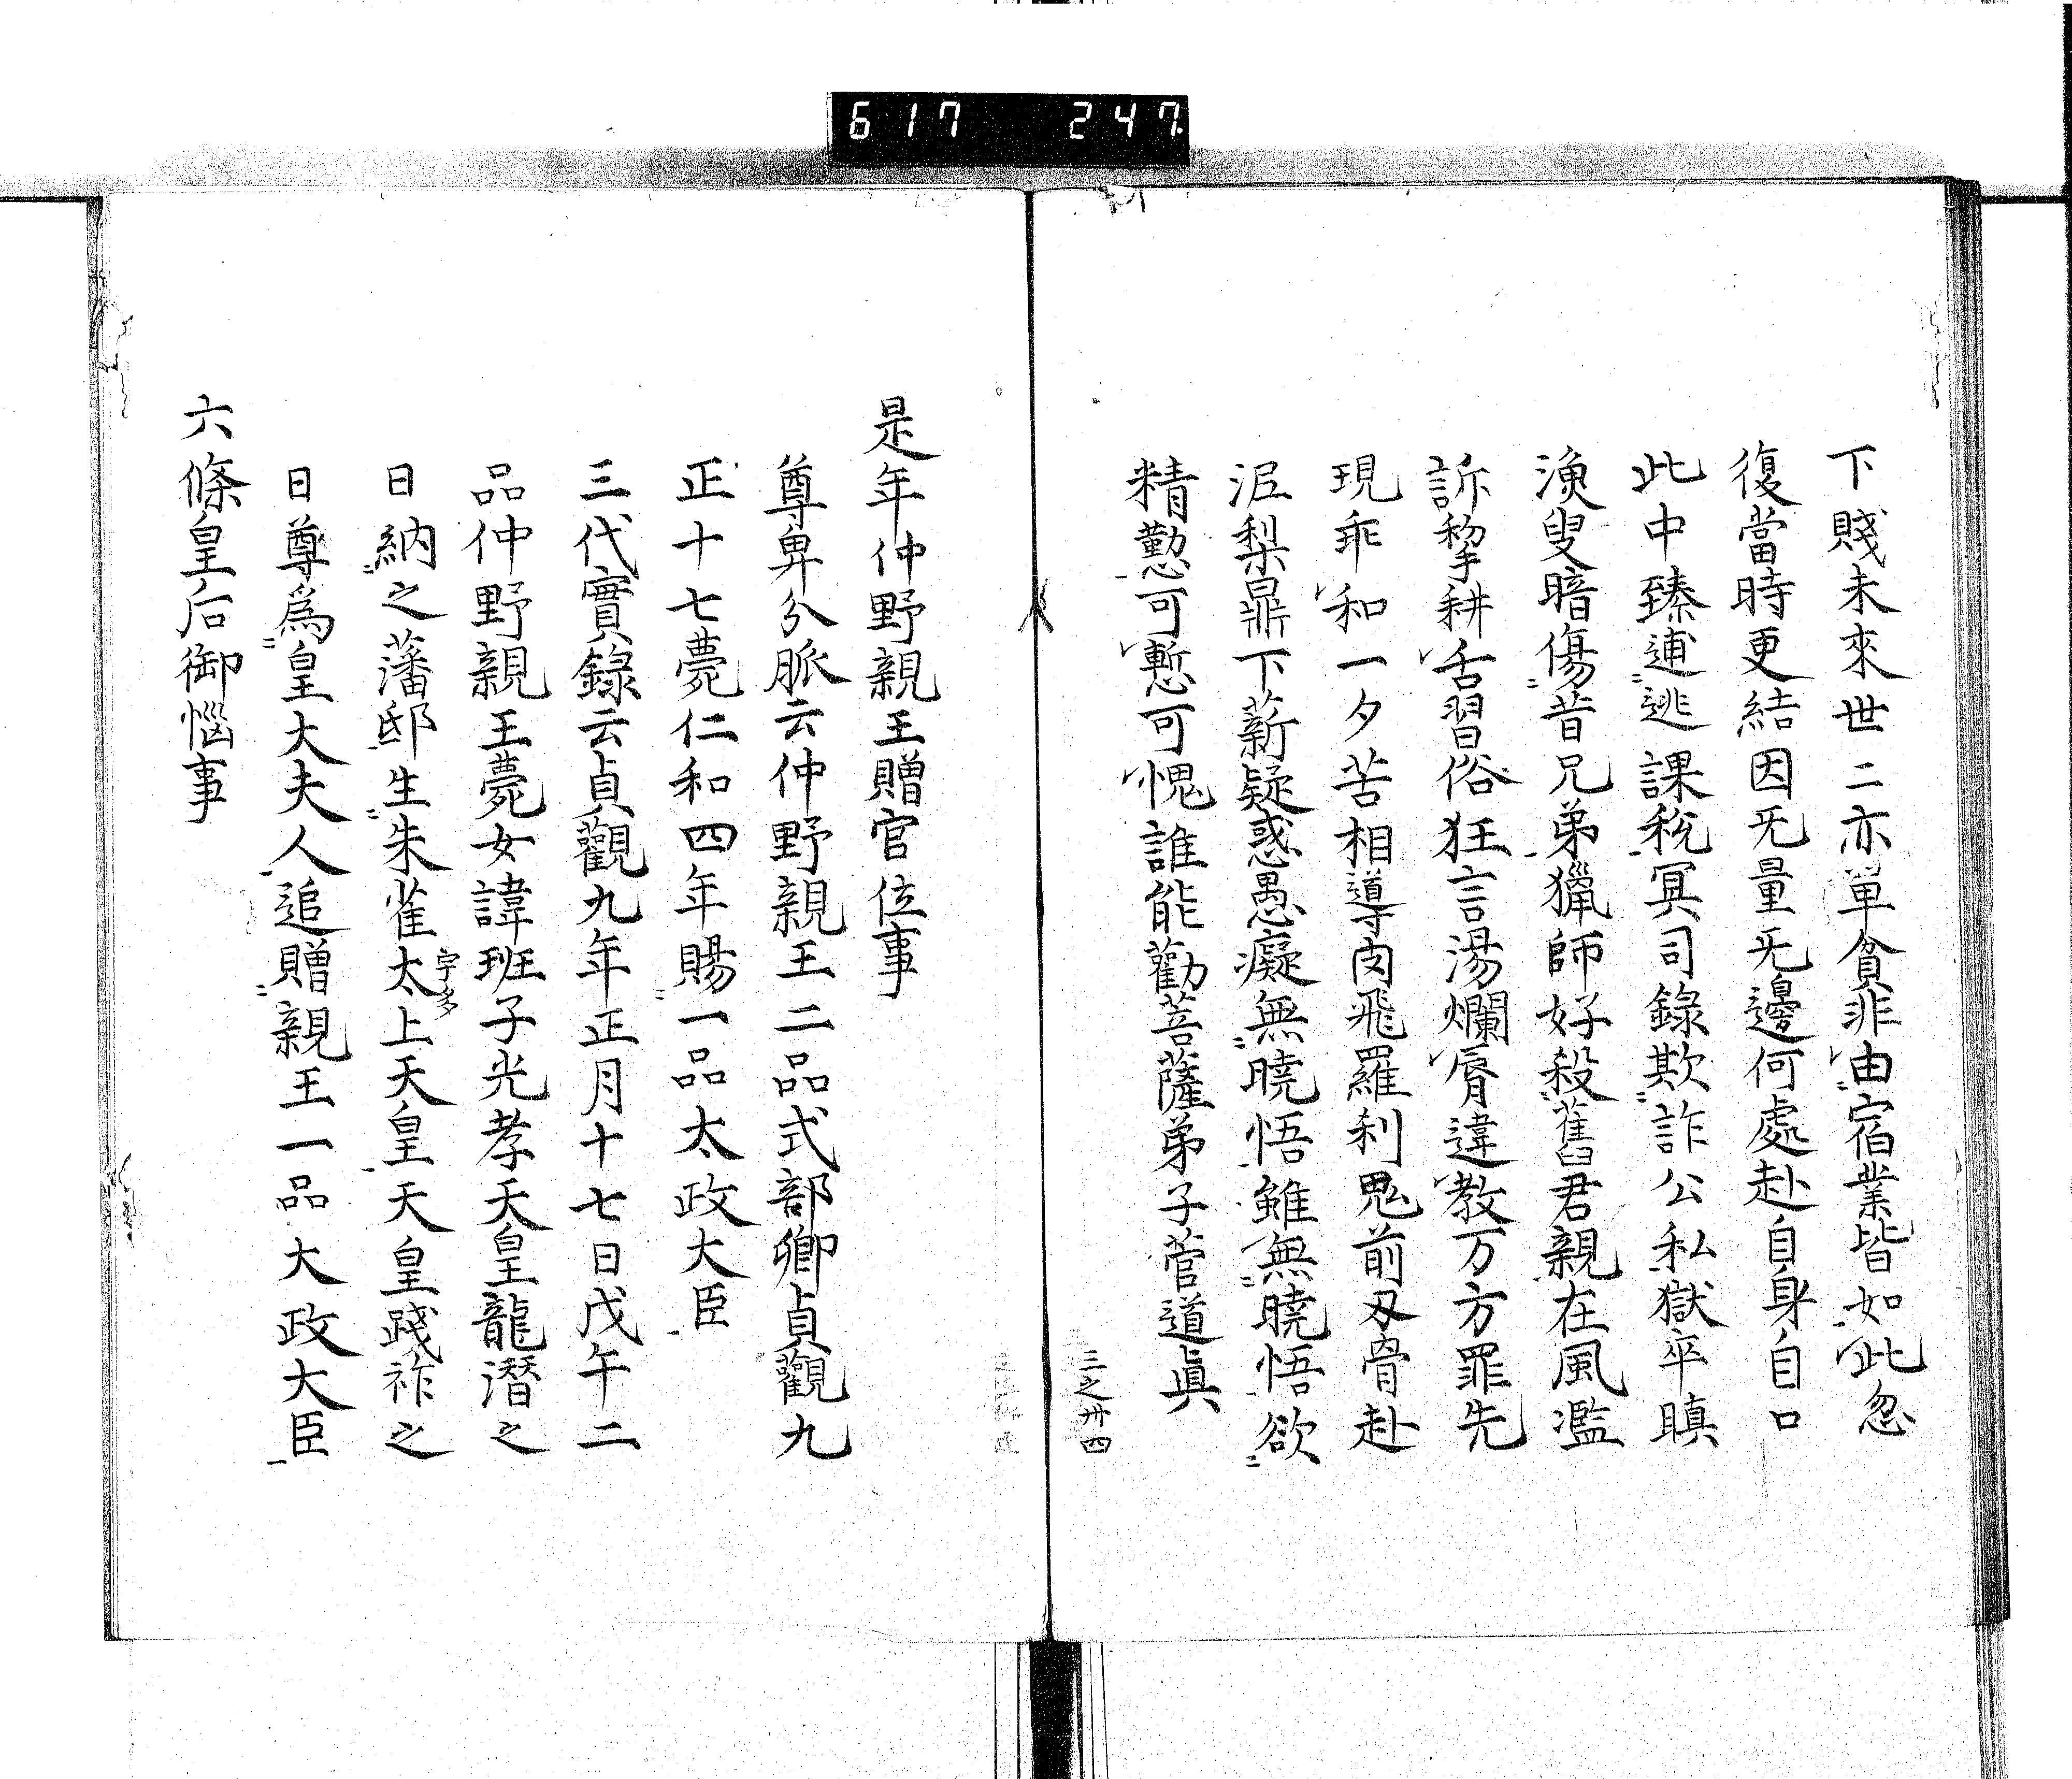 617 247
下賤未來世二亦単貧非由宿業皆如此忽
復當時更結因旡量旡邊何處赴自身自口
此中臻逋逃課税冥司錄欺詐公私獄卒瞋
漁叟暗傷昔兄弟獵師好殺舊君親在風濫
訴犂耕舌習俗狂言湯爛脣違教万方罪先
現乖和一夕苦相導肉飛羅刹鬼前刄骨赴
泥梨鼎下薪疑惑愚癡無曉悟雖無曉悟欲
精懃可慙可愧誰能勸菩薩弟子菅道眞
三之卅四
是年仲野親王贈官位事
尊卑分脈云仲野親王二品式部卿貞觀九
正十七薨仁和四年賜一品太政大臣
三代實錄云貞觀九年正月十七日戊午二
品仲野親王薨女諱班子光孝天皇龍潛之
日納之藩邸生朱雀太上天皇天皇踐祚之
宇多
日尊爲皇大夫人追贈親王一品大政大臣
六條皇后御惱事